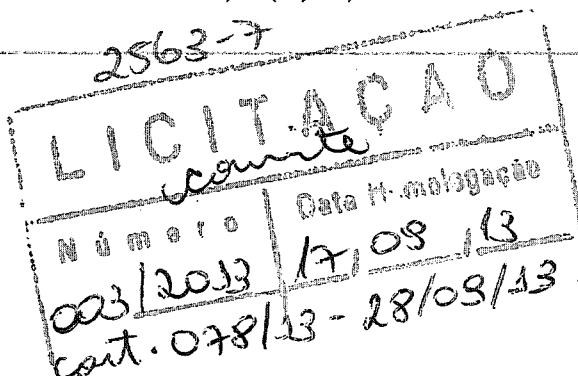 2563-7
LICITAÇÃO
convite
Número Data Homologação
003/2013 17/09/13
Cont. 078/13 - 28/09/13